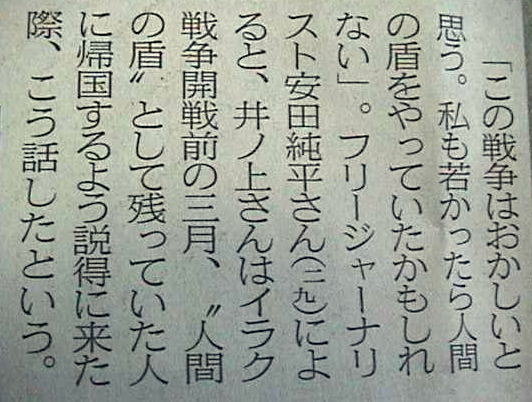 「この戦争はおかしいと
思う。私も若かったら人間
の盾をやっていたかもしれ
ない」。フリージャーナリ
スト安田純平さん(二九)によ
ると、井ノ上さんはイラク
戦争開戦前の三月、〝人間
の盾〟として残っていた人
に帰国するよう説得に来た
際、こう話したという。